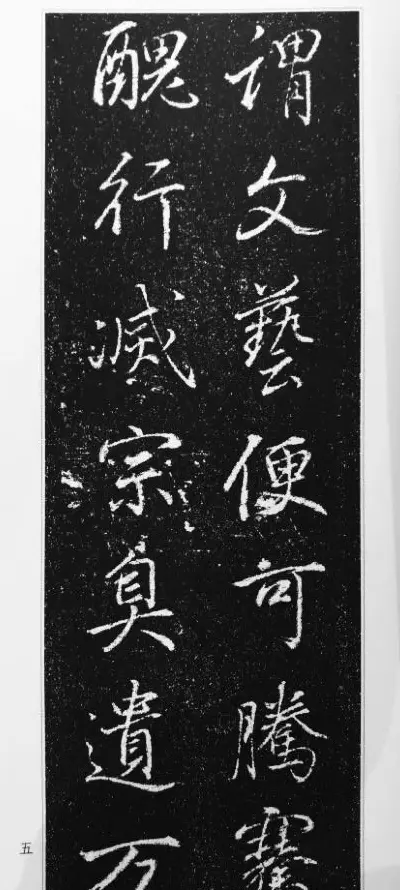 謂文藝便可騰骞
醜行滅宗臭遺万
五